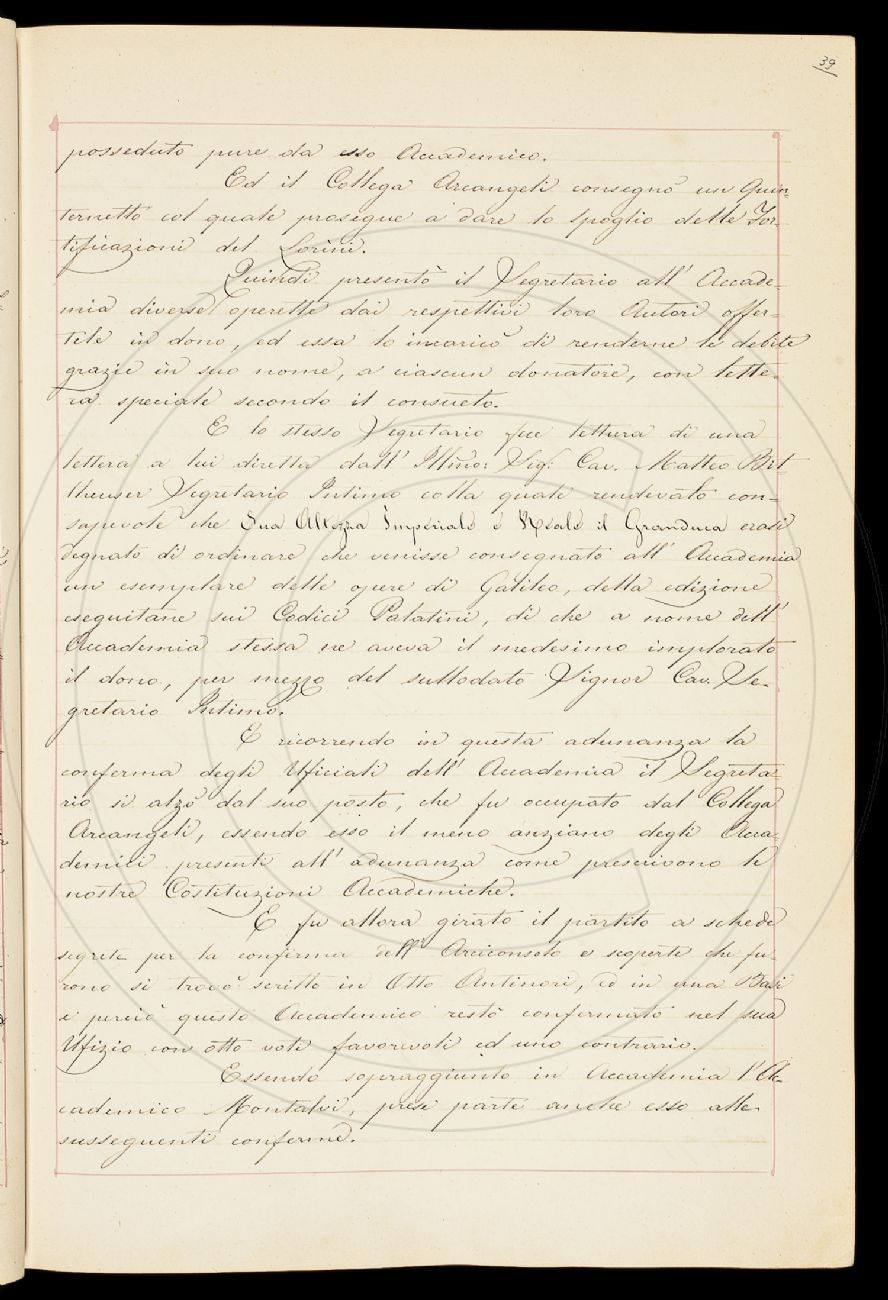 39
posseduto pure da esso Accademico.
Ed il Collega Arcangeli consegnò un Quin-
ternetto col quale prosegue a dare lo spoglio delle For-
tificazioni del Lorini.
Quindi presentò il Segretario all' Accade-
mia diverse operette dai respettivi loro Autori offer-
tele in dono, ed essa lo incaricò di renderne le debite
grazie in suo nome, a ciascun donatore, con lette-
ra speciale secondo il consueto.
E lo stesso Segretario fece lettura di una
lettera a lui diretta dall' Illmo: Sig: Cav. Matteo Bit-
theuser Segretario Intimo colla quale rendevalo con-
sapevole che Sua Altezza Imperiale e Reale il Granduca erasi
degnato di ordinare che venisse consegnato all' Accademia
un esemplare delle opere di Galileo, della edizione
eseguitane sui Codici Palatini, di che a nome dell'
Accademia stessa ne aveva il medesimo implorato
il dono, per mezzo del sullodato Signor Cav. Se-
gretario Intimo.
E ricorrendo in questa adunanza la
conferma degli Uficiali dell' Accademia il Segreta-
rio si alzò dal suo posto, che fu occupato dal Collega
Arcangeli, essendo esso il meno anziano degli Acca-
demici presenti all' adunanza come prescrivono le
nostre Costituzioni Accademiche.
E fu allora girato il partito a schede
segrete per la conferma dell' Arciconsolo e scoperte che fu-
rono si trovò scritto in Otto Antinori, ed in una Basi
e perciò questo Accademico restò confermato nel suo
Ufizio con otto voti favorevoli ed uno contrario.
Essendo sopraggiunto in Accademia l'Ac-
cademico Montalvi, prese parte anche esso alle
susseguenti conferme.